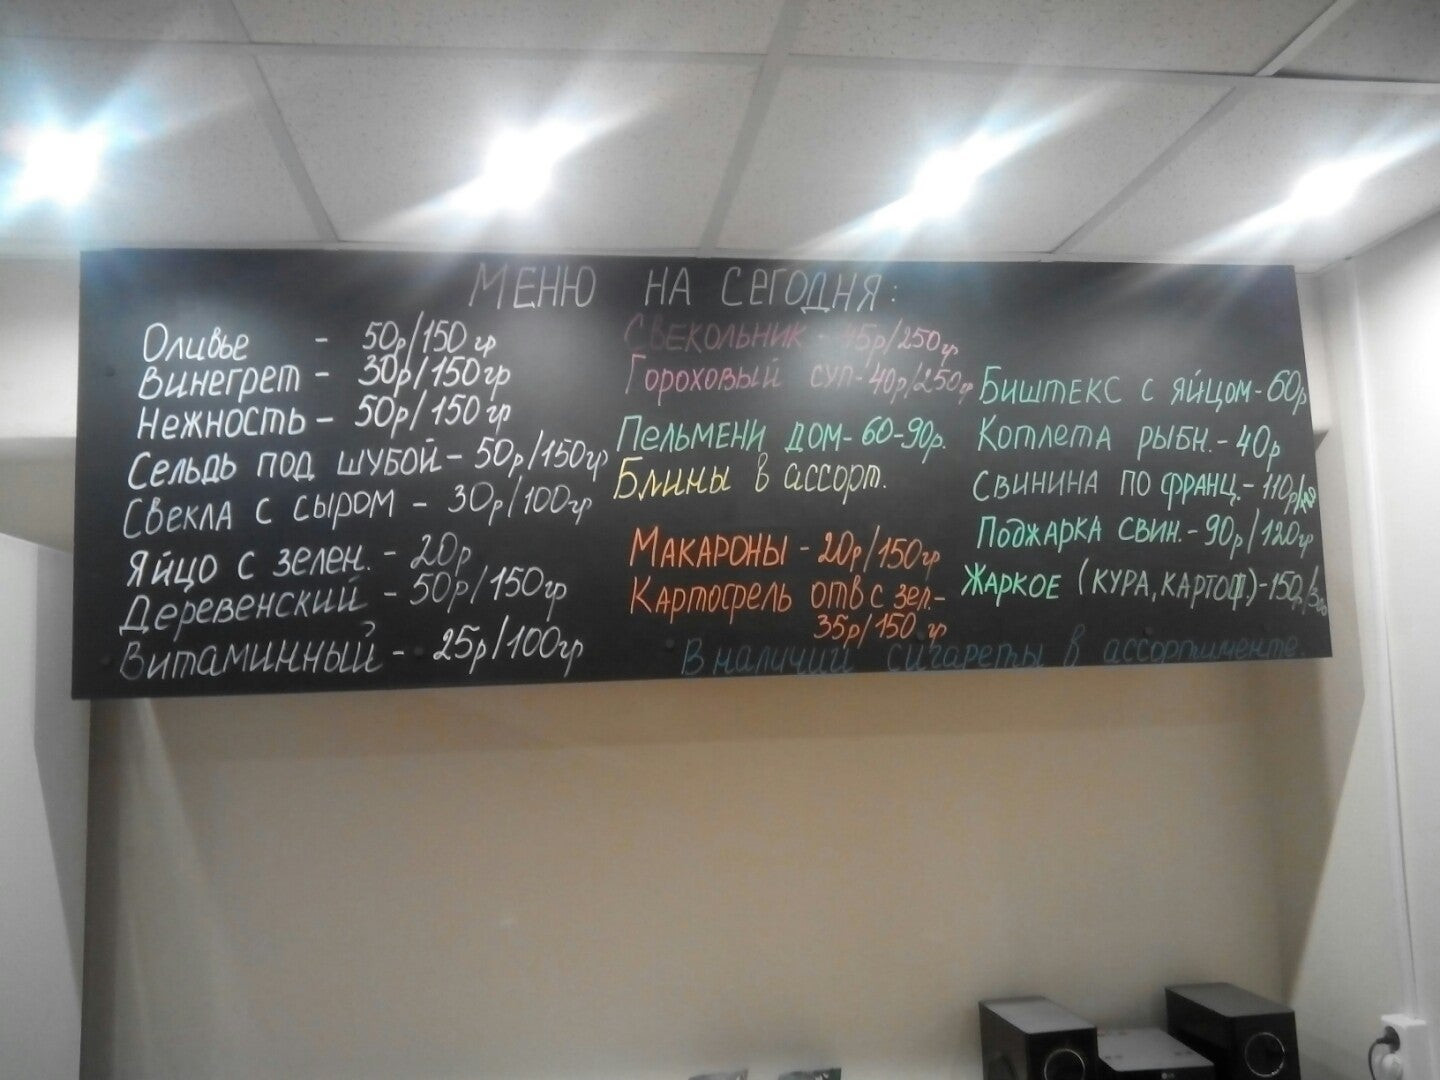 Меню на сегодня:
Оливье - 50р/150гр
Винегрет - 30р/150гр
Нежность - 50р/150гр
Сельдь под шубой - 50р/150гр
Свекла с сыром - 30р/100гр
Яйцо с зелен. - 20р
Деревенский - 50р/150гр
Витаминный - 25р/100гр
Свекольник - 45р/250гр
Гороховый суп - 40р/250гр
Пельмени дом - 60-90р.
Блины в ассорт.
Макароны - 20р/150гр
Картофель отв с зел. -
35р/150 гр
Биштекс с яйцом - 60р
Котлета рыбн. - 40р
Свинина по франц. - 110р/
Поджарка свин. - 90р/120гр
Жаркое (кура, картоф.) - 150р/300
В наличии сигареты в ассортименте.
LG